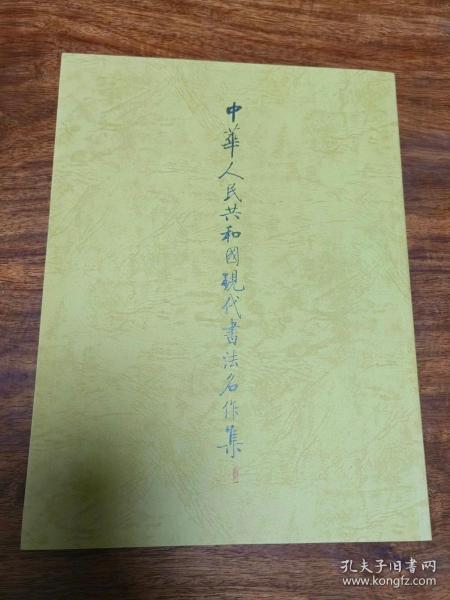 中華人民共和國現代書法名作集
孔夫子旧书网
www.kongfz.com